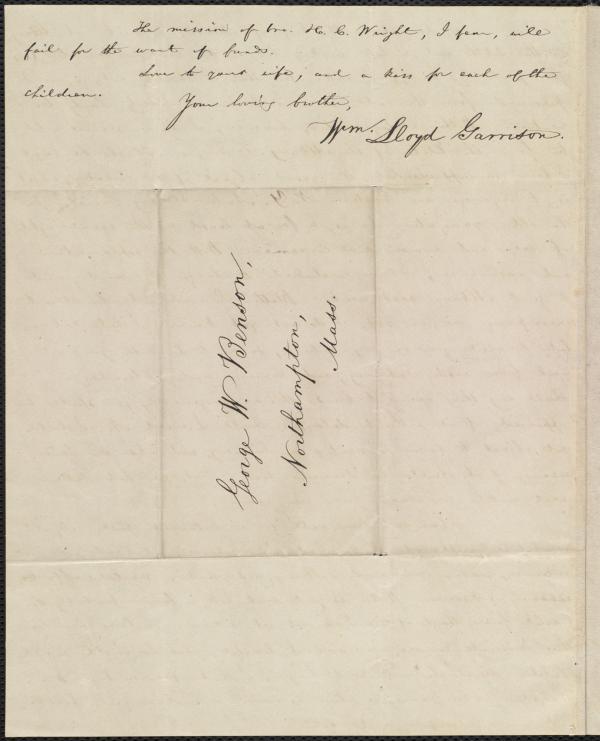 The mission of bro. H. C. Wright, I fear, will
fail for the want of funds.
Love to your wife, and a kiss for each of the
children.
Your loving brother,
Wm. Lloyd Garrison.
George W. Benson,
Northampton,
Mass.